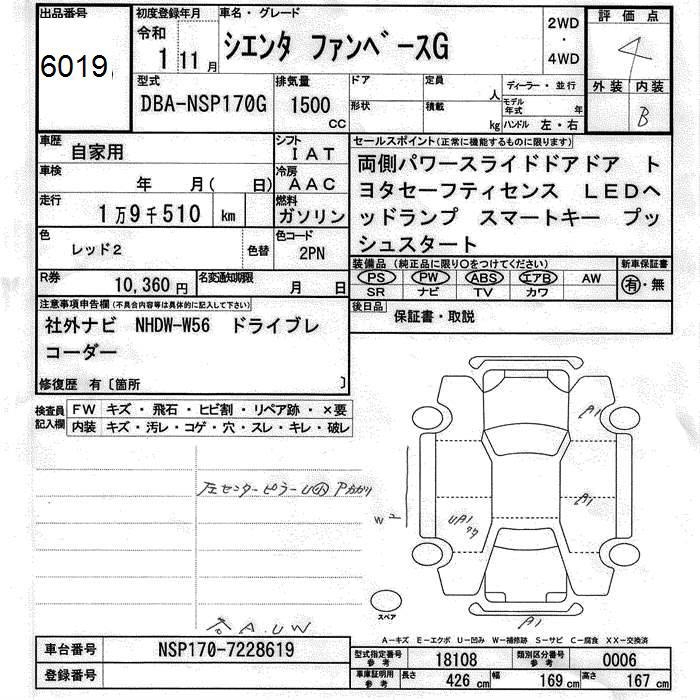 出品番号
6019
初度登録年月
令和
1 11 月
車名・グレード
シエンタ ファンベースG
2WD
・
4WD
評価点
4
外装 内装
B
型式
DBA-NSP170G
排気量
1500
CC
ドア
定員
人
形状
積載
kg
ディーラー・並行
モデル年式
年
ハンドル 左・右
車歴
自家用
シフト
IAT
車検
年 月( 日)
冷房
AAC
走行
1万9千510 km
燃料
ガソリン
色
レッド2
色替
色コード
2PN
R券
10,360円
名変通知期限
月 日
セールスポイント(正常に機能するものに限ります)
両側パワースライドドアドア ト
ヨタセーフティセンス LEDヘ
ッドランプ スマートキー プッ
シュスタート
装備品(純正品に限り○をつけてください)
PS PW ABS エアB AW
SR ナビ TV カワ
新車保証書
有・無
後日品
保証書・取説
注意事項申告欄(不具合内容等は具体的に記入して下さい)
社外ナビ NHDW-W56 ドライブレ
コーダー
修復歴 有〔箇所 〕
検査員
記入欄
FW キズ・飛石・ヒビ割・リペア跡・×要
内装 キズ・汚レ・コゲ・穴・スレ・キレ・破レ
左センターピラーU
A1
A1
W2
UA1
スペア
A.UW
A1
A-キズ E-エクボ U-凹み W-補修跡 S-サビ C-腐食 XX-交換済
車台番号
NSP170-7228619
登録番号
型式指定番号
参考
18108
類別区分番号
参考
0006
車庫証明用
参考
長さ 426 cm
幅 169 cm
高さ 167 cm